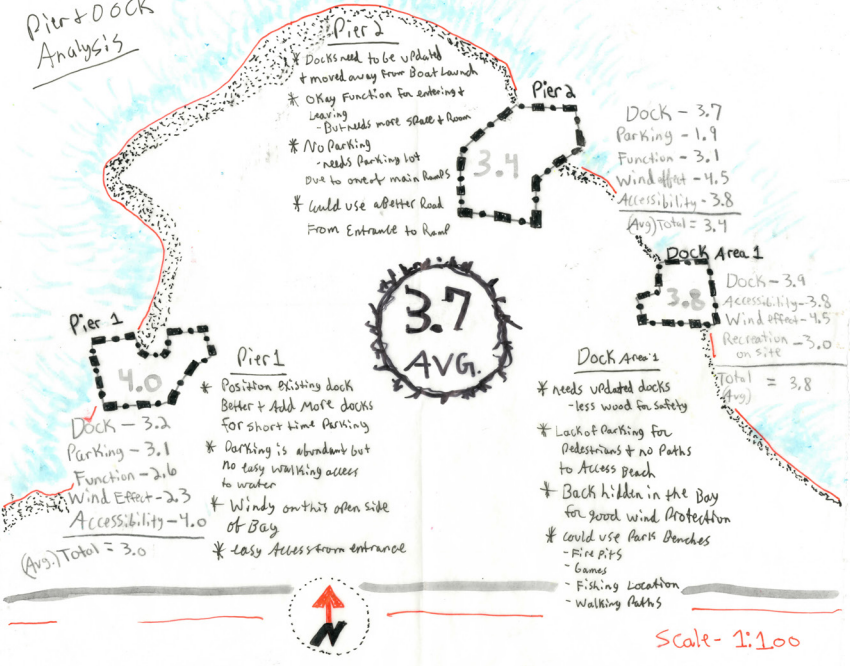 Pier & Dock
Analysis
Pier 2
* Docks need to be updated
& moved away from Boat Launch
* Okay Function for entering &
Leaving
- But needs more space & Room
* No Parking
- needs Parking lot
Due to one of main Ramps
* Could use a Better Road
From Entrance to Ramp
Pier 2
3.4
Dock - 3.7
Parking - 1.9
Function - 3.1
Wind effect - 4.5
Accessibility - 3.8
(Avg) Total = 3.4
Dock Area 1
3.8
Dock - 3.9
Accessibility - 3.8
Wind effect - 4.5
Recreation - 3.0
on site
Total = 3.8
(Avg)
3.7
AVG.
Pier 1
4.0
Dock - 3.2
Parking - 3.1
Function - 2.6
Wind Effect - 2.3
Accessibility - 4.0
(Avg.) Total = 3.0
Pier 1
* Position existing dock
Better & Add More docks
for short time Parking
* Parking is abundant but
no easy walking access
to water
* Windy on this open side
of Bay
* easy Access from entrance
Dock Area 1
* needs updated docks
- less wood for safety
* Lack of Parking for
Pedestrians & no Paths
to Access Beach
* Back hidden in the Bay
for good wind Protection
* Could use Park Benches
- Fire Pits
- Games
- Fishing Location
- Walking Paths
N
Scale - 1:100